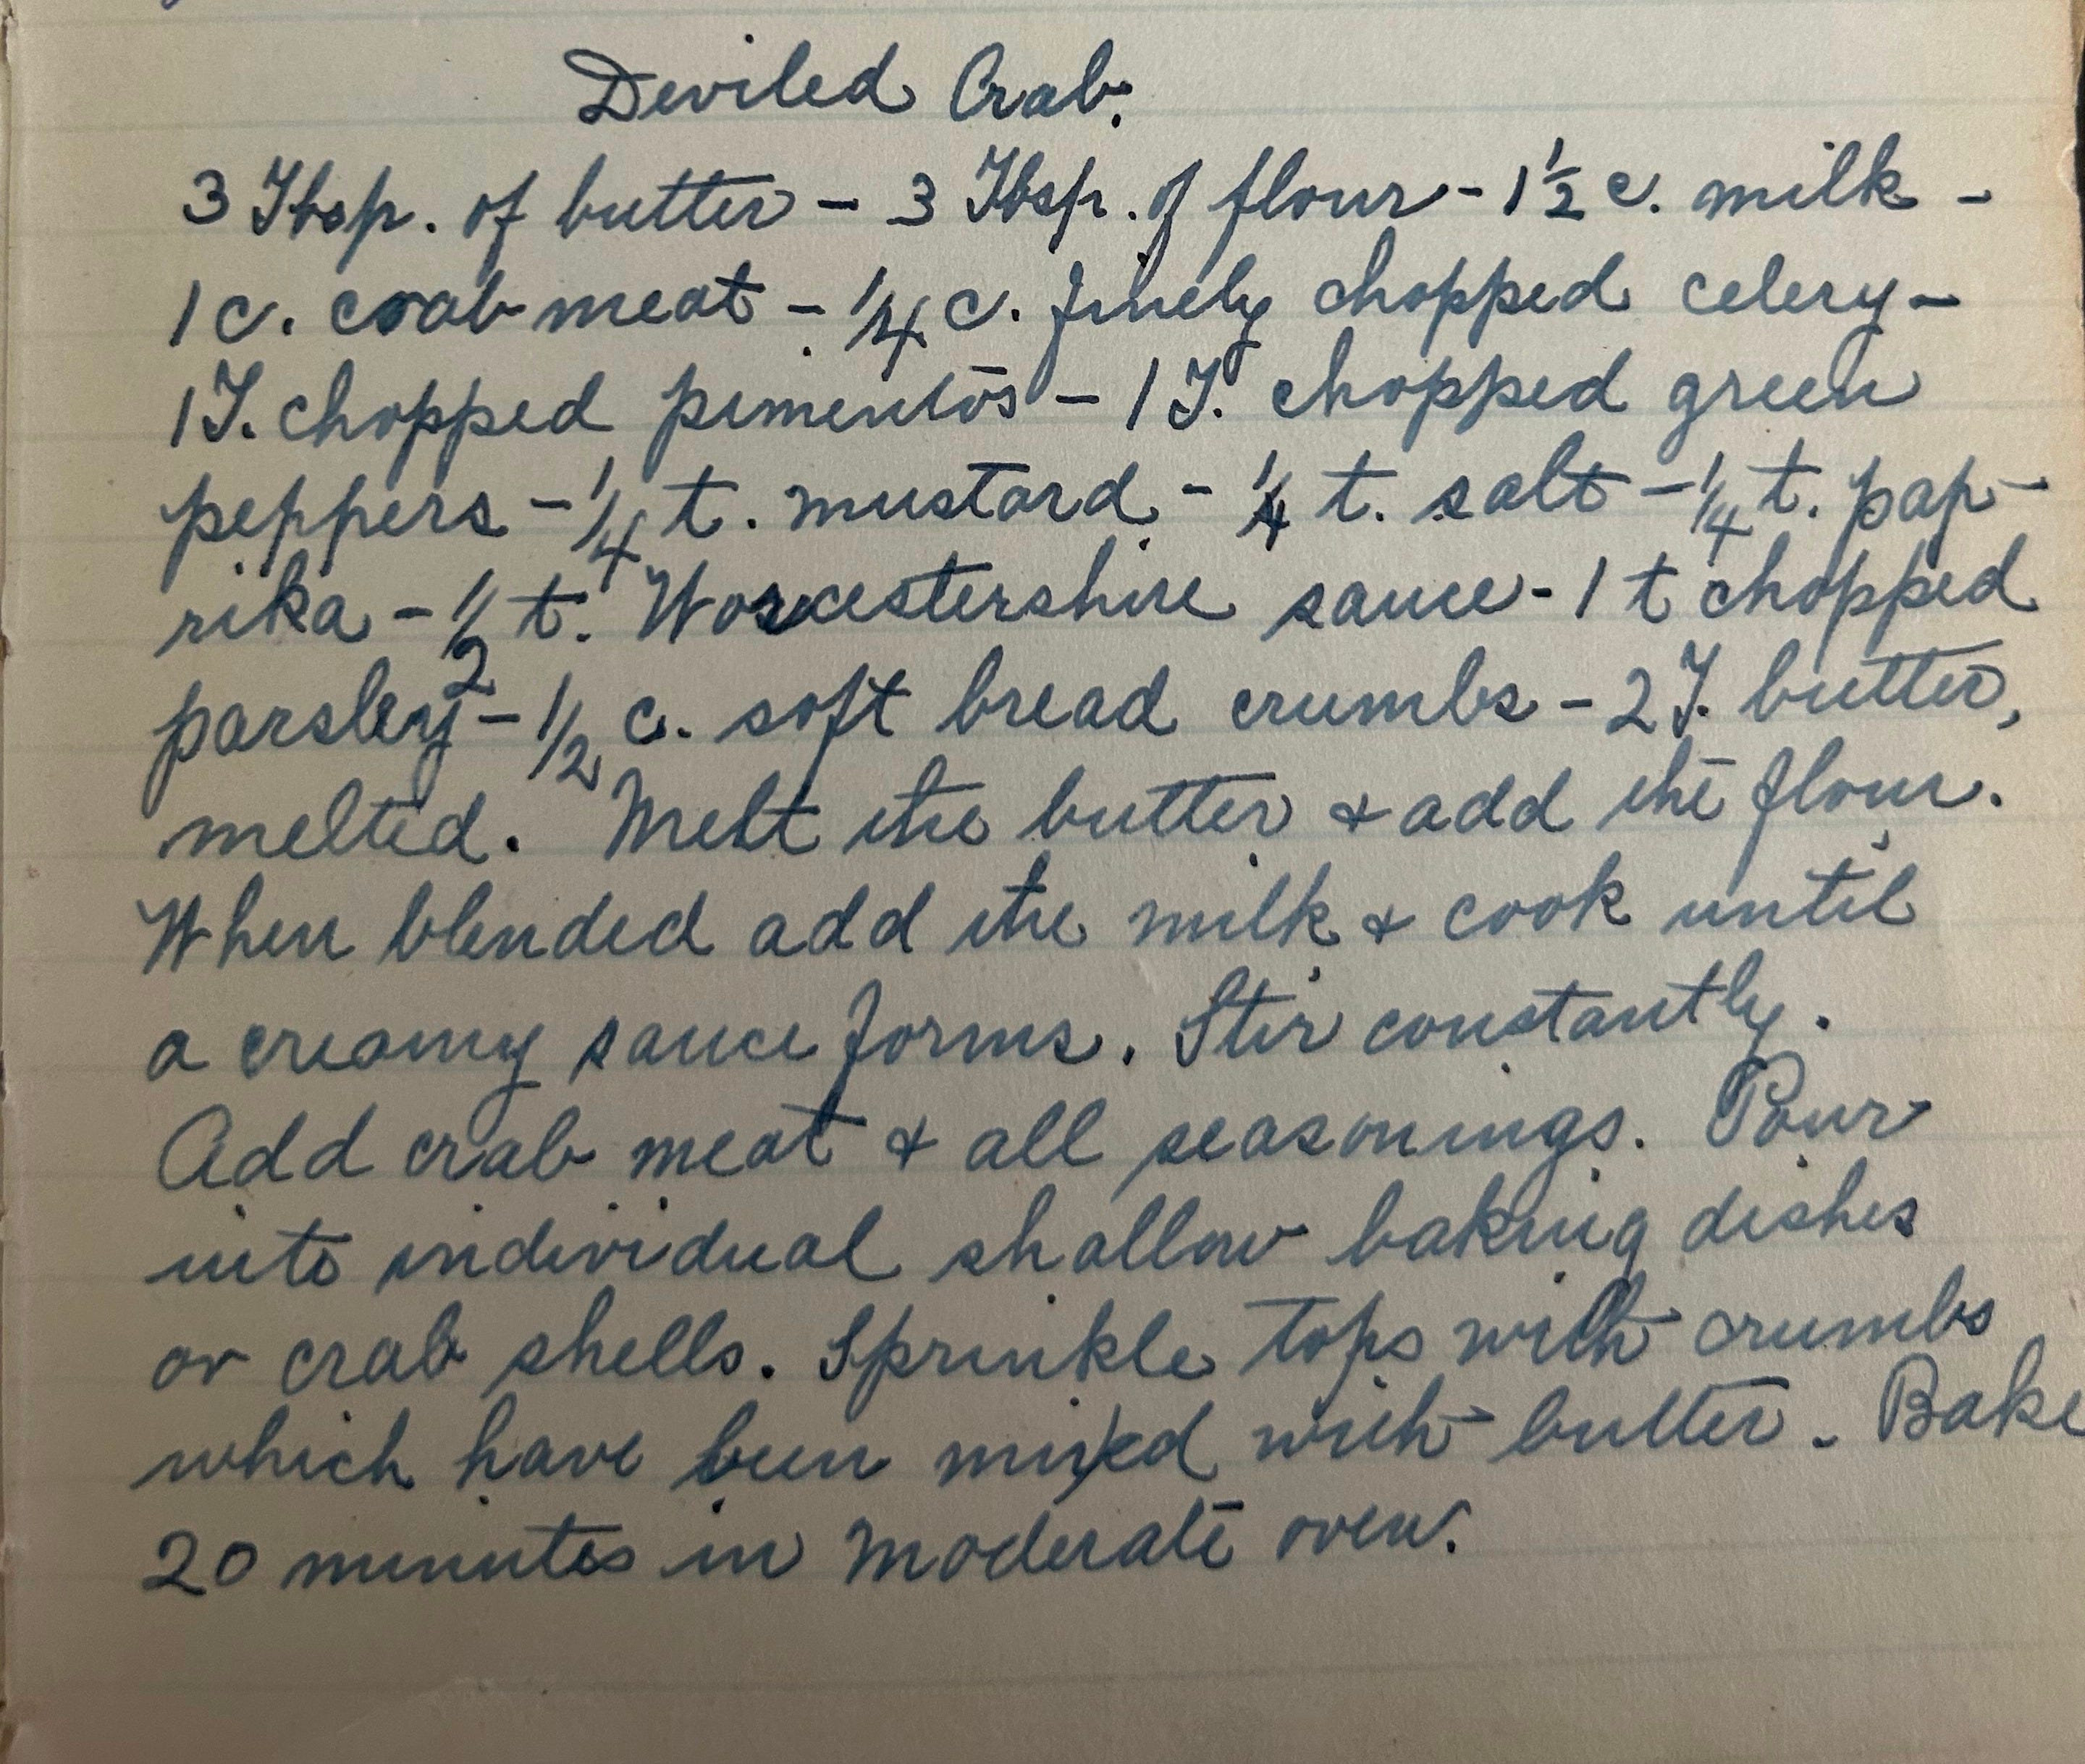 Deviled Crab.
3 Tbsp. of butter - 3 Tbsp. of flour - 1 1/2 c. milk -
1 c. crab meat - 1/4 c. finely chopped celery -
1 T. chopped pimentos - 1 T. chopped green
peppers - 1/4 t. mustard - 1/4 t. salt - 1/4 t. pap-
rika - 1/2 t. Worcestershire sauce - 1 t chopped
parsley - 1/2 c. soft bread crumbs - 2 T. butter,
melted. Melt the butter & add the flour.
When blended add the milk & cook until
a creamy sauce forms. Stir constantly.
Add crab meat & all seasonings. Pour
into individual shallow baking dishes
or crab shells. Sprinkle tops with crumbs
which have been mixed with butter. Bake
20 minutes in moderate oven.